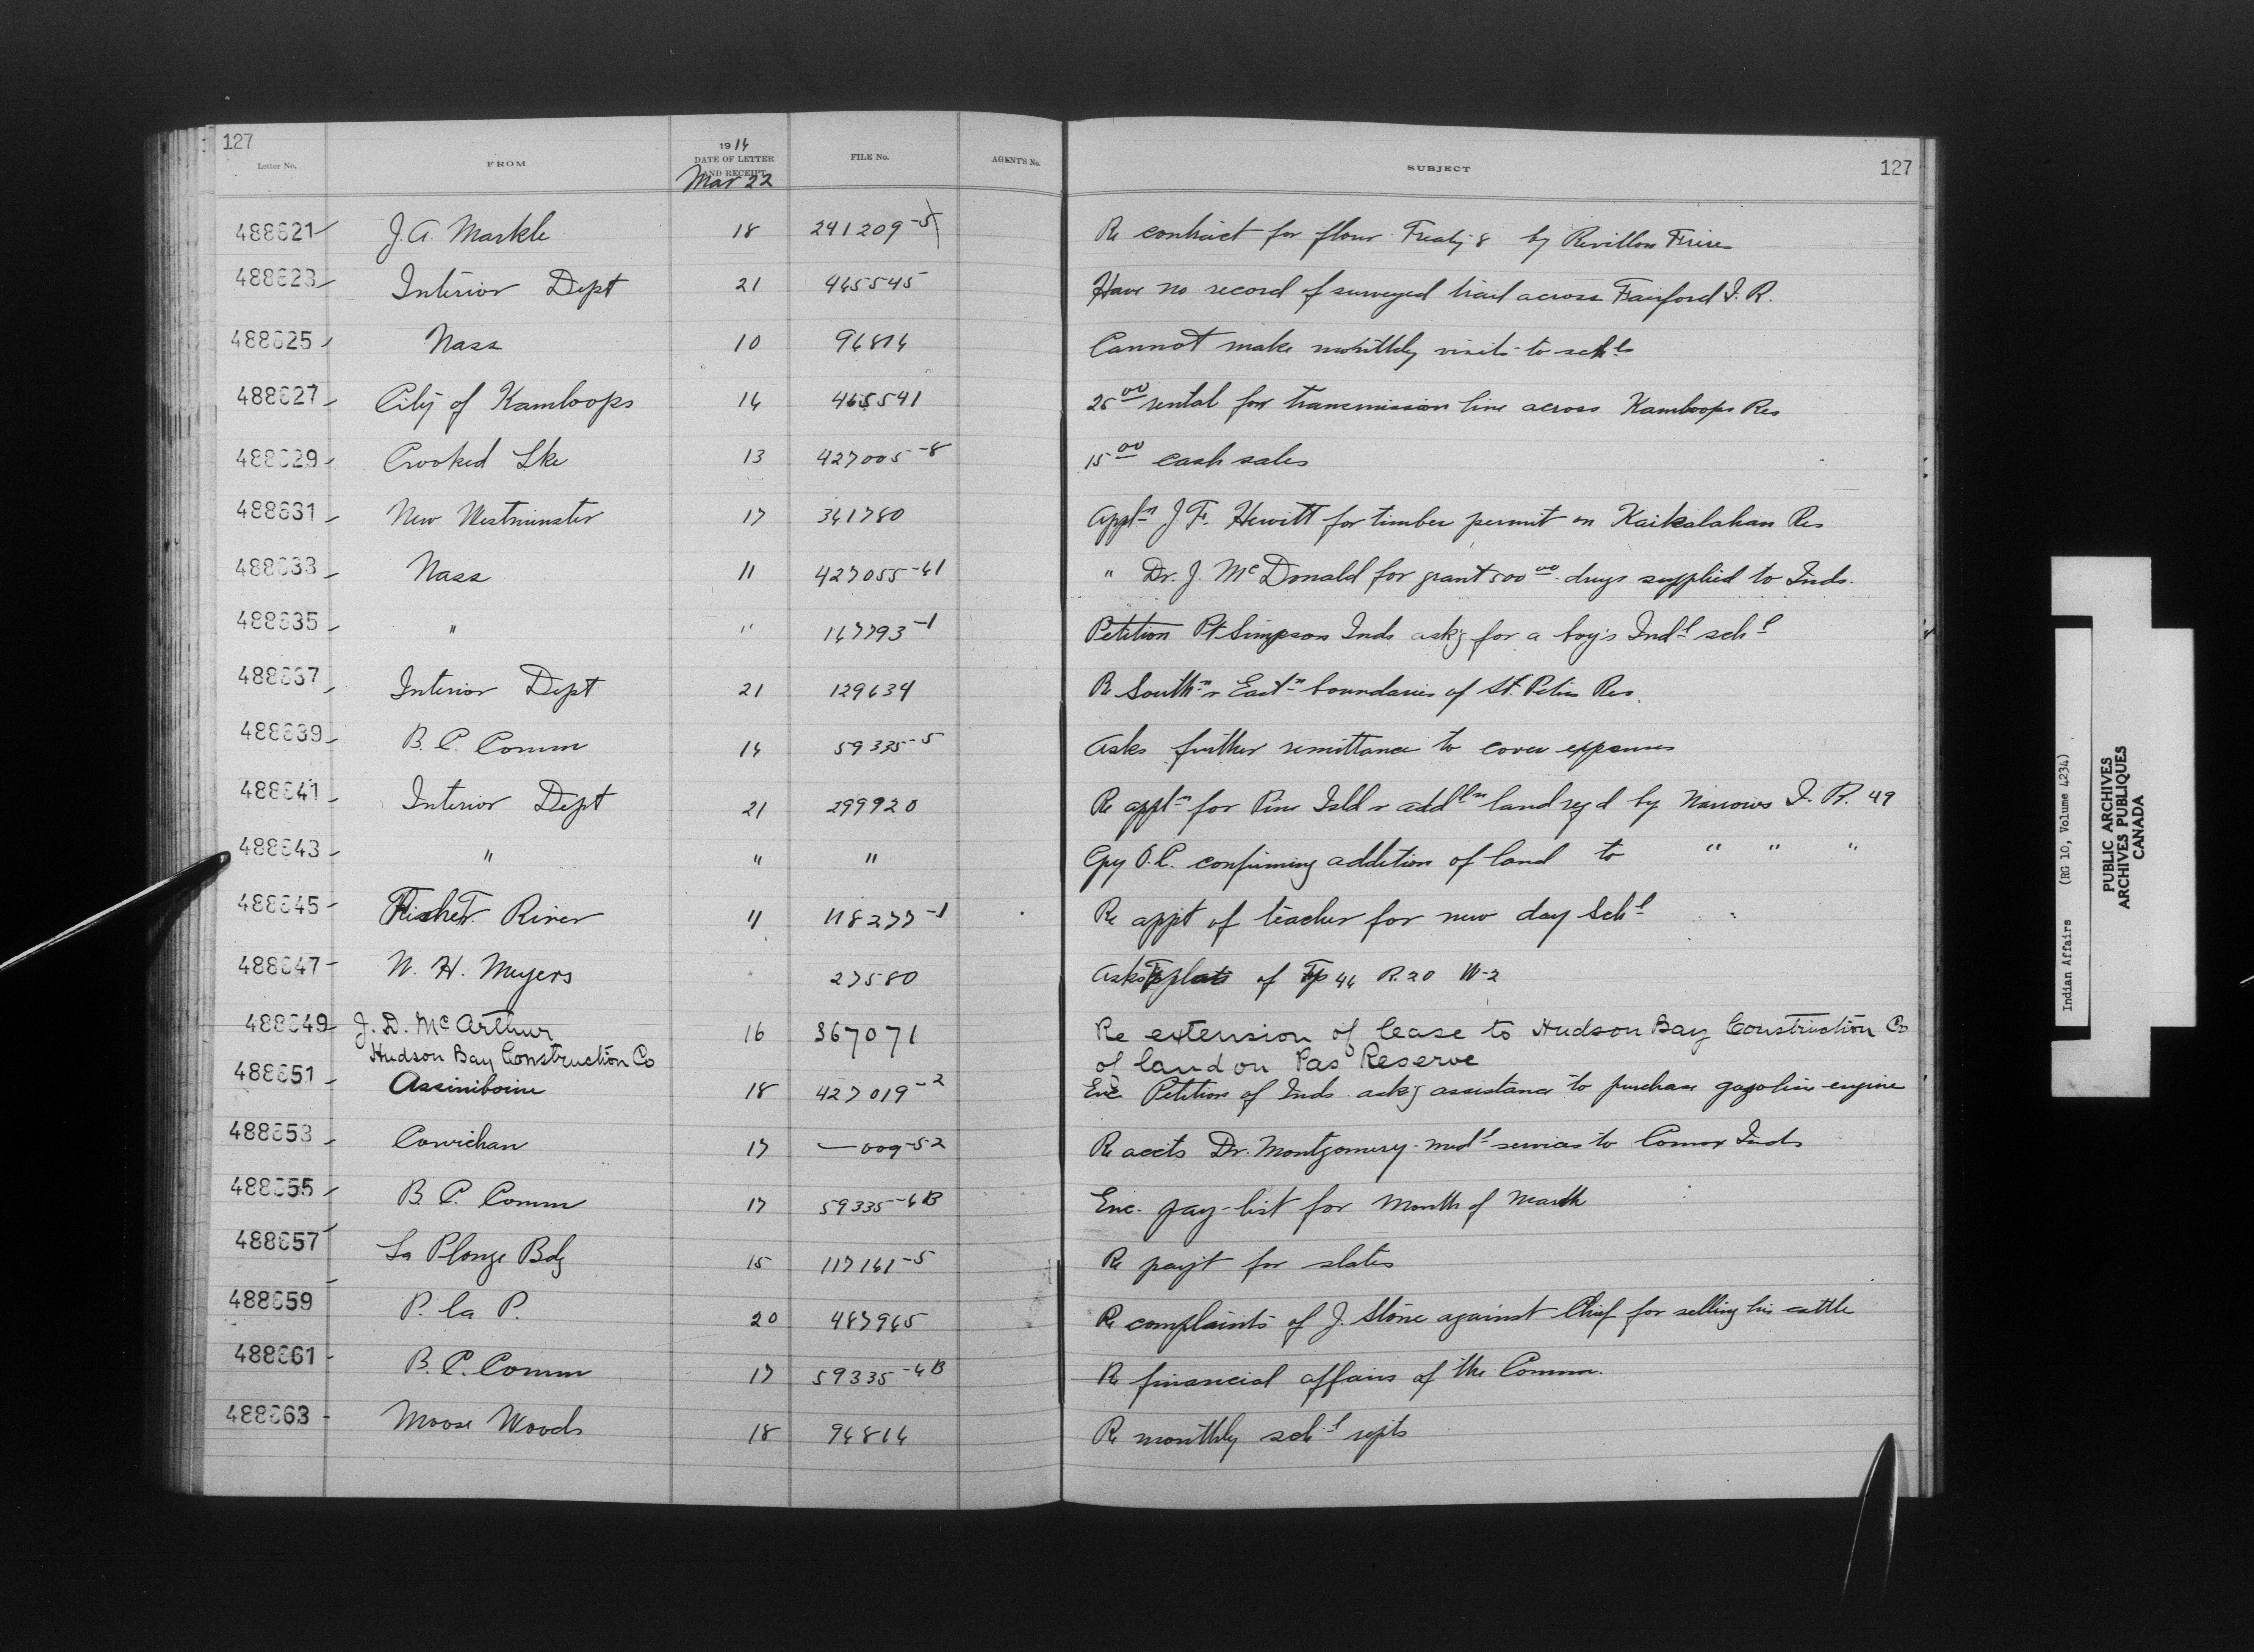 127
1914
Letter No. FROM DATE OF LETTER AND RECEIPT FILE No. AGENT'S No. SUBJECT 127
Mar 22
488621 J. A. Markle 18 241209-5 Re contract for flour Treaty 8 by Revillon Freres
488623 Interior Dept 21 465545 Have no record of surveyed trail across Fairford I. R.
488625 Nass 10 94814 Cannot make monthly visits to schls
488627 City of Kamloops 14 465541 25 00 rental for transmission line across Kamloops Res
488629 Crooked Lke 13 427005-8 15 00 cash sales
488631 New Westminster 17 341780 Appln J. F. Hewitt for timber permit on Kaikalahan Res
488633 Nass 11 427055-41 " Dr. J. McDonald for grant 500 00 drugs supplied to Inds.
488635 " " 147793-1 Petition Pt Simpson Inds ask'g for a boy's Indl schl
488637 Interior Dept 21 129634 Re Southn & Eastn boundaries of St. Peters Res.
488639 B. C. Comm 14 59335-5 Asks further remittance to cover expenses
488641 Interior Dept 21 299920 Re appln for Pine Isld & addln land reqd by Narrows I. R. 49
488643 " " " Cpy O.C. confirming addition of land to " " "
488645 Fisher River 11 118277-1 Re appt of teacher for new day Schl
488647 W. H. Meyers 27580 Asks plats of Tp 44 R. 20 W-2
488649 J. D. McArthur 16 367071 Re extension of lease to Hudson Bay Construction Co
Hudson Bay Construction Co of land on Pas Reserve
488651 Assiniboine 18 427019-2 Enc Petition of Inds ask'g assistance to purchase gasoline engine
488653 Cowichan 17 —009-52 Re accts Dr. Montgomery medl services to Comox Inds
488655 B. C. Comm 17 59335-4B Enc. pay-list for Month of March
488657 La Plonge Bdg 15 117141-5 Re payt for slates
488659 P. la P. 20 487965 Re complaints of J. Stone against Chief for selling his cattle
488661 B. C. Comm 17 59335-4B Re financial affairs of the Comm.
488663 Moose Woods 18 94814 Re monthly schl repts
Indian Affairs (RG 10, Volume 4234)
PUBLIC ARCHIVES
ARCHIVES PUBLIQUES
CANADA